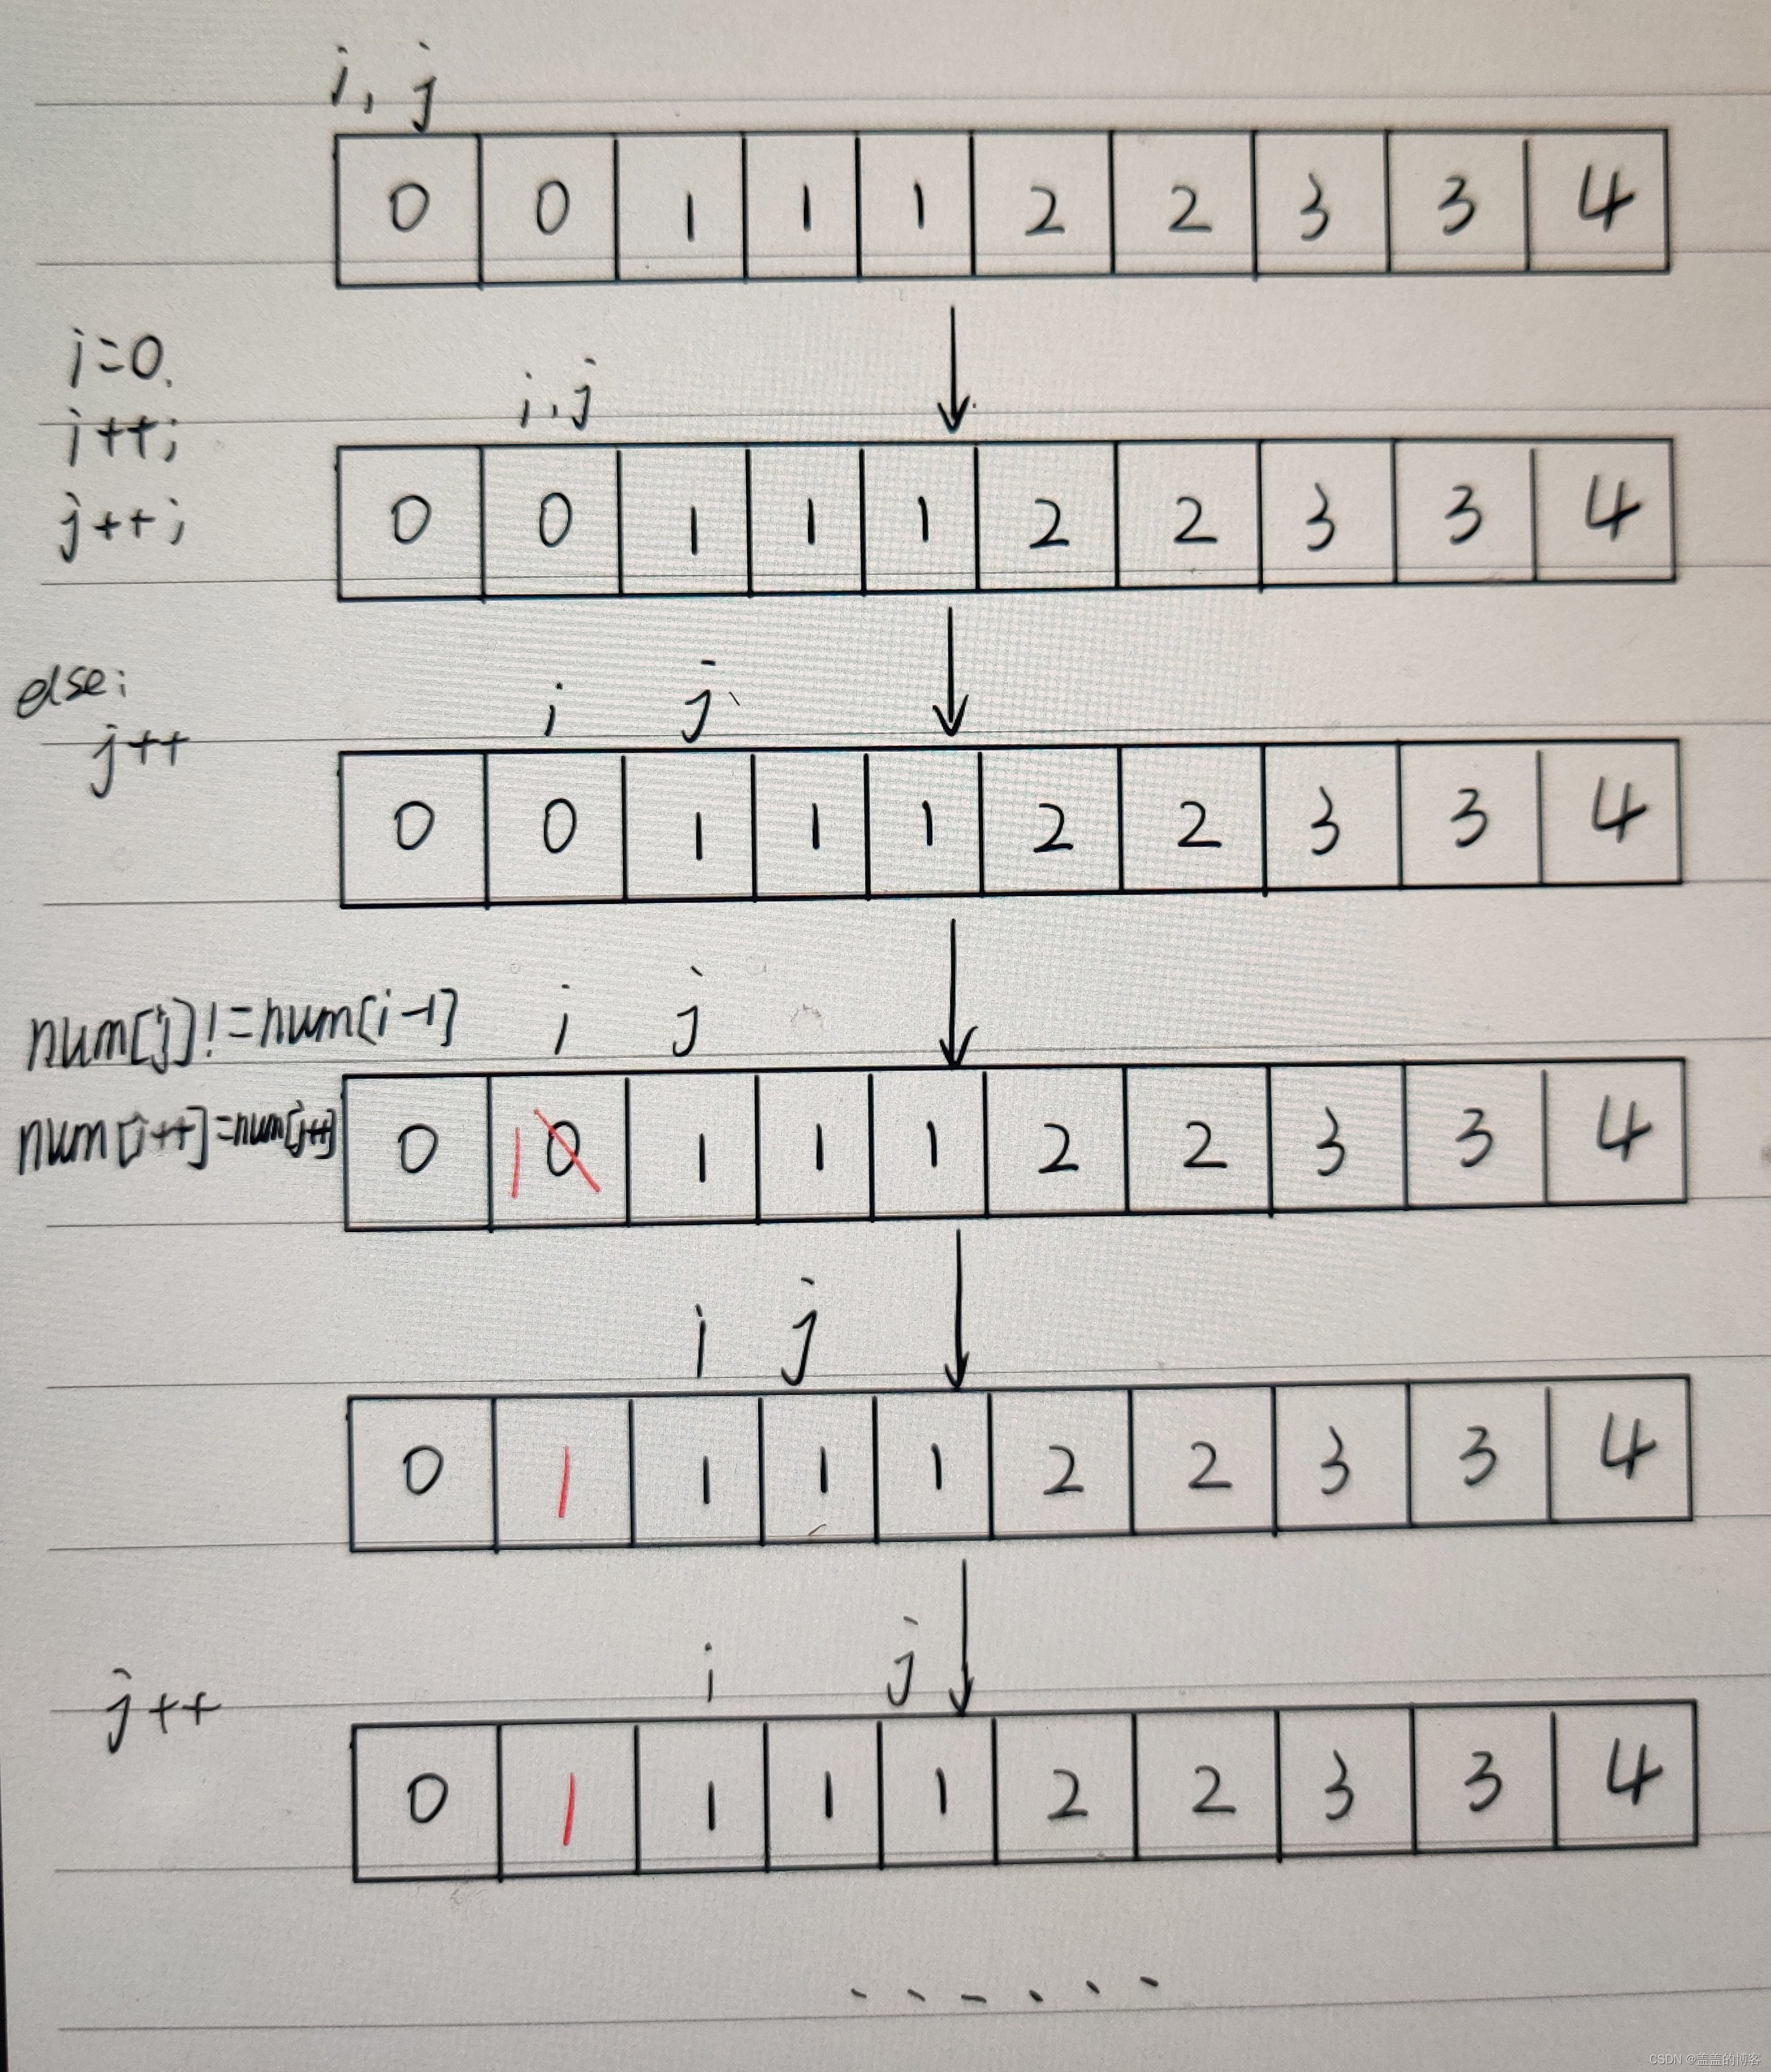 i, j
0 0 1 1 1 2 2 3 3 4
i=0.
i++;
j++;
i,j
0 0 1 1 1 2 2 3 3 4
else:
j++
i j
0 0 1 1 1 2 2 3 3 4
num[j]!=num[i-1]
num[i++]=num[j++]
i j
0 1 0 1 1 1 2 2 3 3 4
i j
0 1 1 1 1 2 2 3 3 4
j++
i j
0 1 1 1 1 2 2 3 3 4
......
CSDN @盖盖的博客